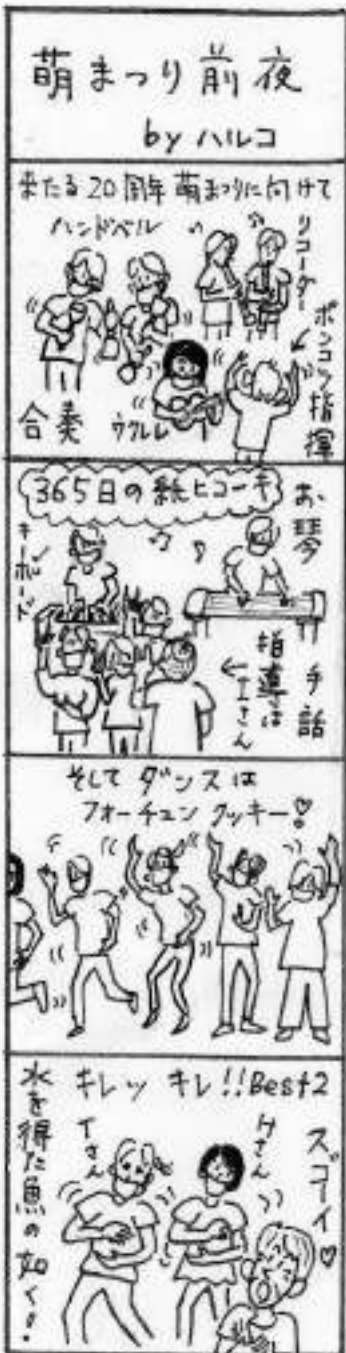 萌まつり前夜
by ハルコ
来たる20周年 萌まつりに向けて
ハンドベル
リコーダー
ポンコツ指揮
合奏
ウクレレ
365日の紙ヒコーキ
お琴
キーボード
手話
指導は
Iさん
そして ダンスは
フォーチュンクッキー♡
キレッ キレ!!Best2
ズゴーイ♡
Hさん
Tさん
水を得た魚の如く!